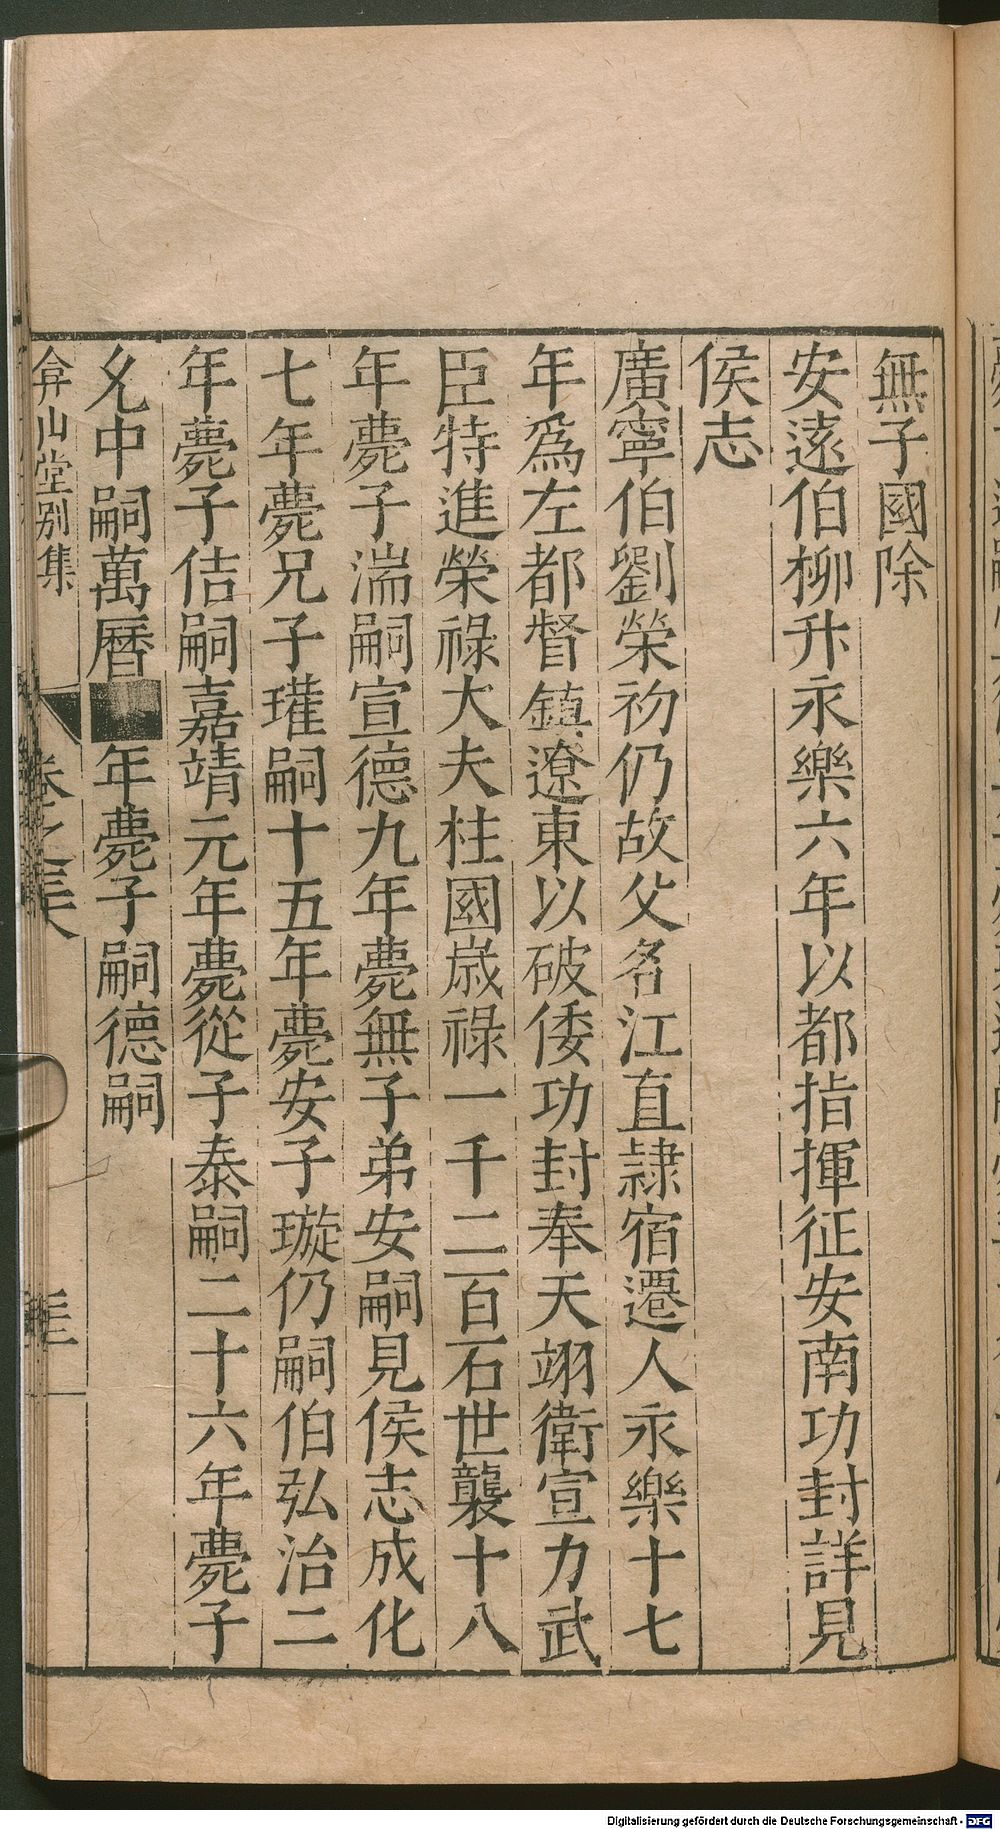 無子國除
安遠伯柳升永樂六年以都指揮征安南功封詳見
侯志
廣寧伯劉榮初仍故父名江直隷宿遷人永樂十七
年爲左都督鎮遼東以破倭功封奉天翊衛宣力武
臣特進榮祿大夫柱國嵗祿一千二百石世襲十八
年薨子湍嗣宣德九年薨無子弟安嗣見侯志成化
七年薨兄子璀嗣十五年薨安子璇仍嗣伯弘治二
年薨子佶嗣嘉靖元年薨從子泰嗣二十六年薨子
允中嗣萬曆年薨子嗣德嗣
弇山堂别集
卷之三
Digitalisierung gefördert durch die Deutsche Forschungsgemeinschaft - DFG